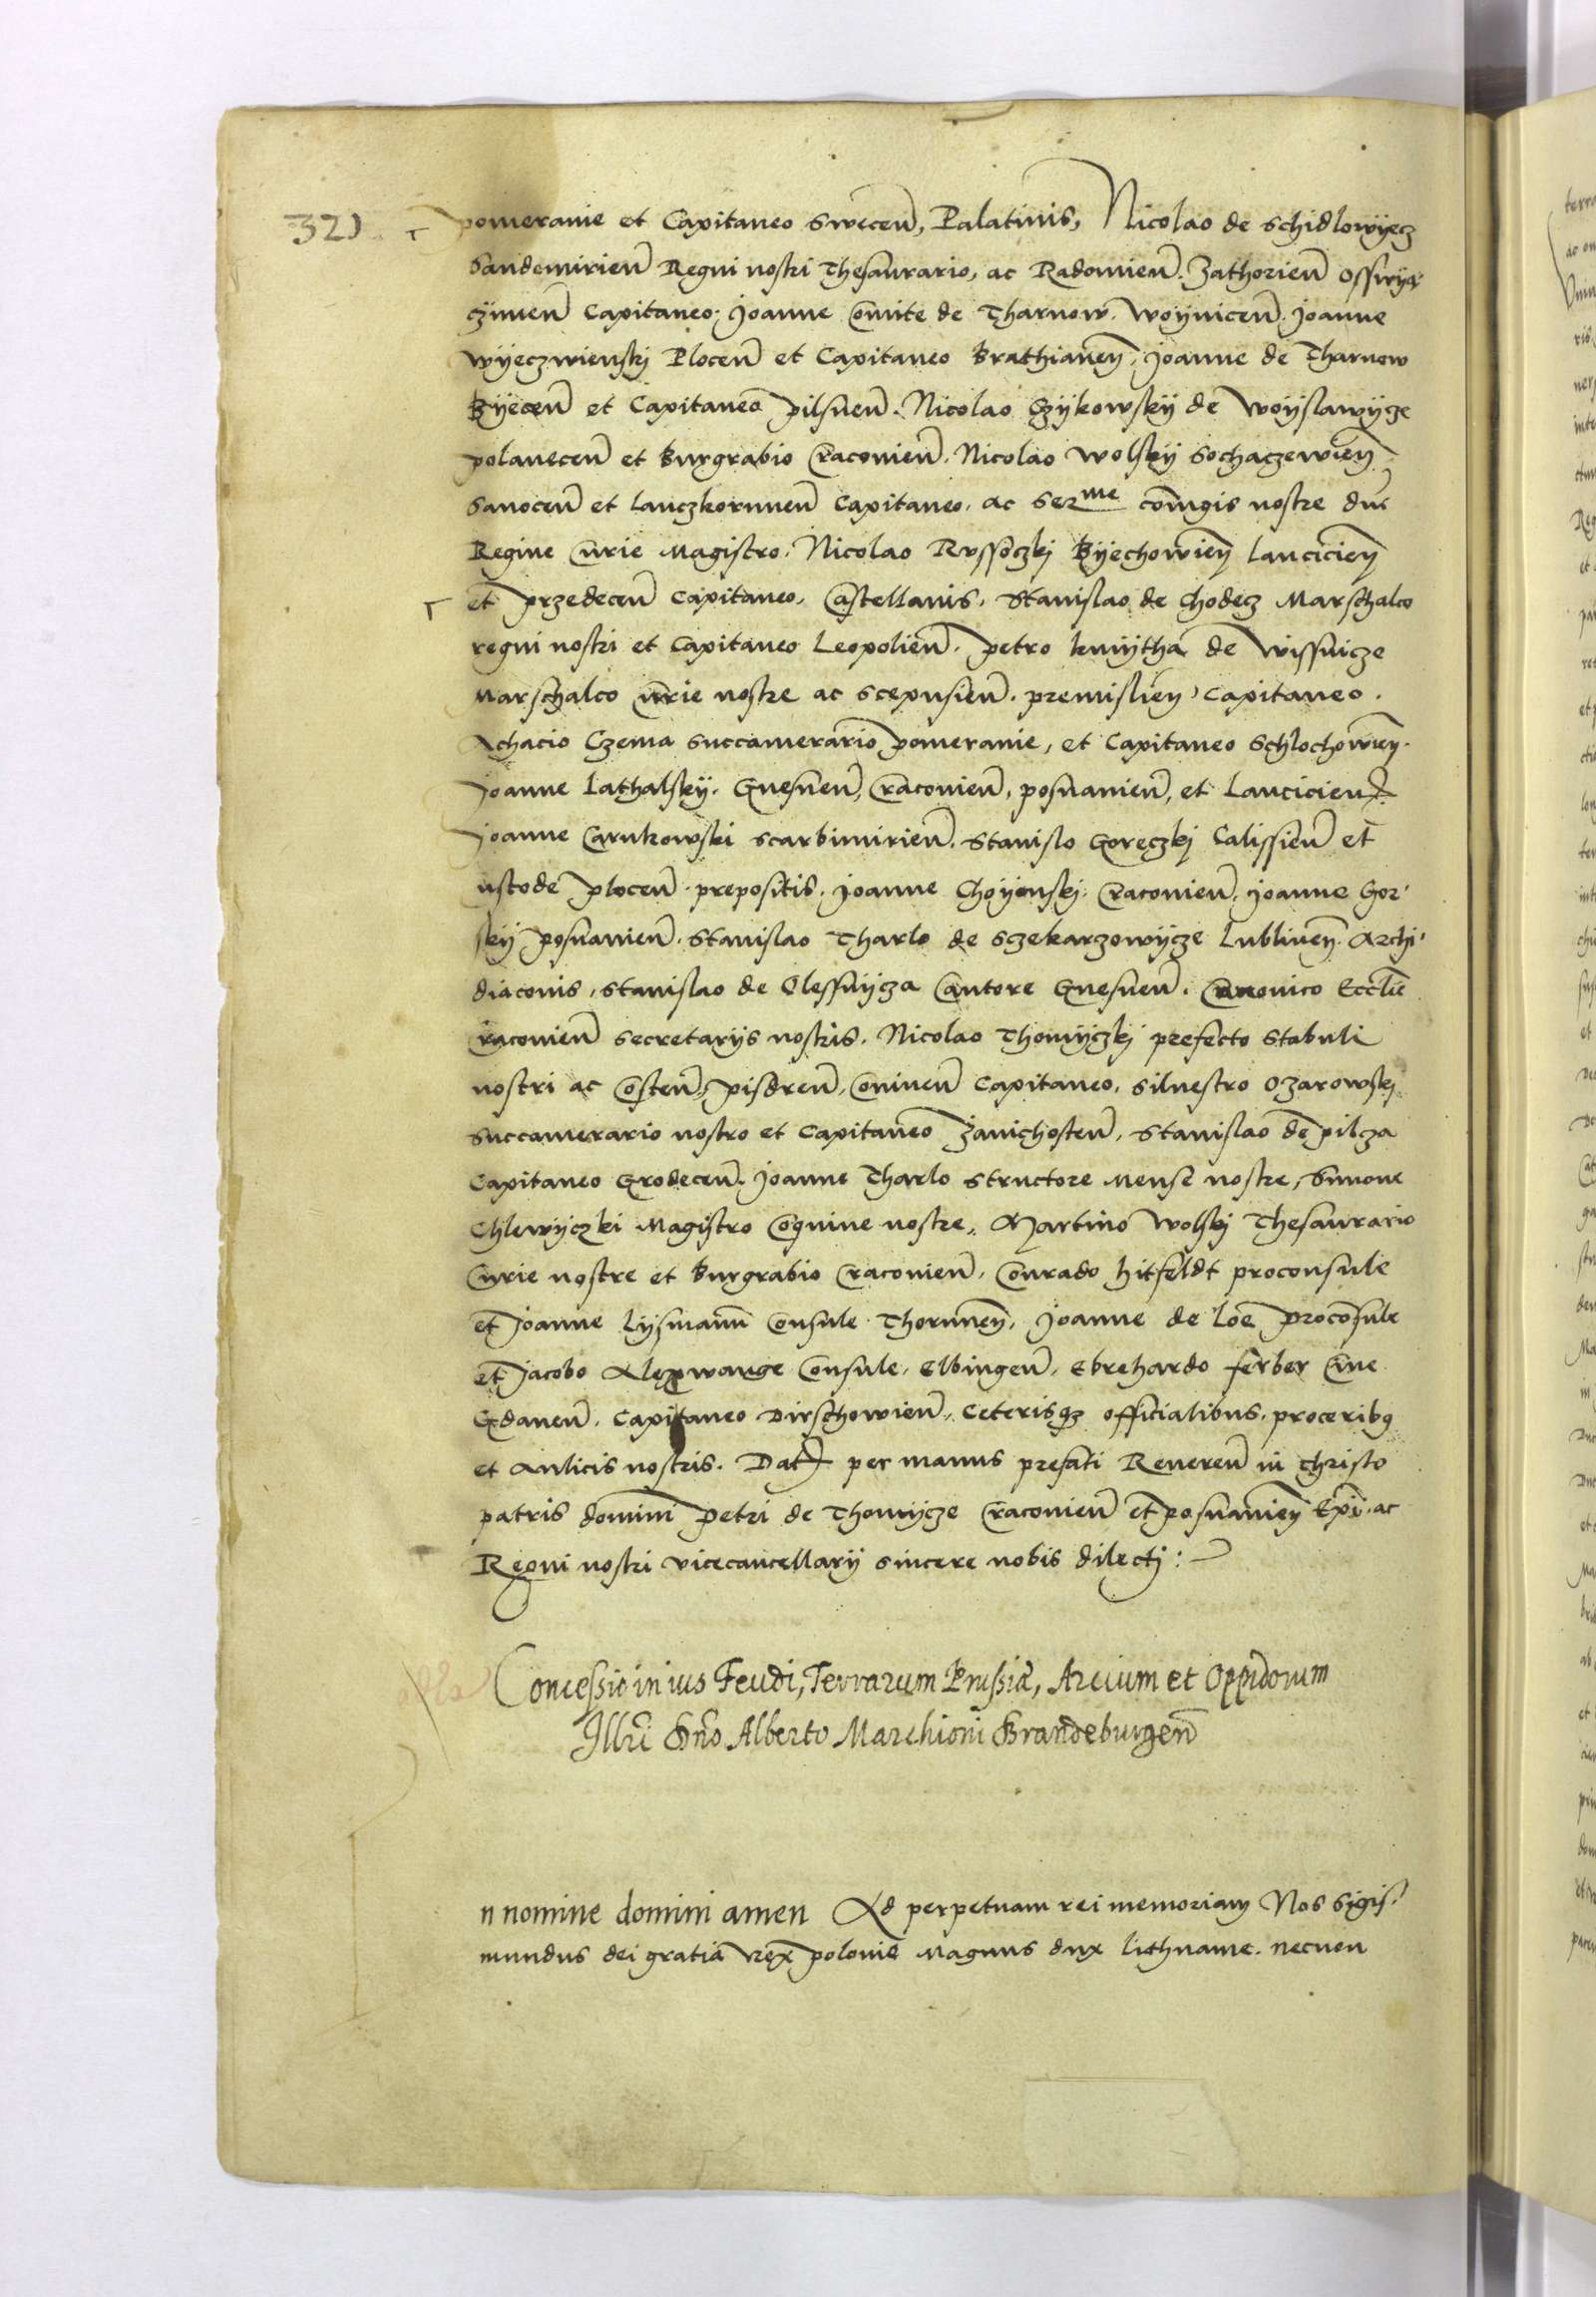 321
pomeranie et Capitaneo Swecen̄, Palatinis, Nicolao de Schidlowyecz
Sandomirien̄ Regni nostri Thesaurario, ac Radomien̄. Zathorien̄ Osswya-
czimen̄ Capitaneo. Joanne Comite de Tharnow. Woynicen̄. Joanne
Wyeczwienskj Plocen̄ et Capitaneo Brathianen̄, Joanne de Tharnow
Byecen̄ et Capitaneo pilsnen̄. Nicolao Czykowsky de Woyslawycze
polanecen̄ et Burgrabio Cracovien̄. Nicolao Wolsky Sochaczewien̄
Sanocen̄ et Lanczkorunen̄ Capitaneo. ac Serme coniugis nostre dn̄e
Regine Curie Magistro. Nicolao Russoczkj Byechowien̄ Lancicien̄
et Przedecen̄ Capitaneo, Castellanis. Stanislao de Chodecz Marschalco
regni nostri et Capitaneo Leopolien̄. Petro kmytha de Wissnicze
Marschalco Curie nostre ac Scepusien̄. premislien̄ Capitaneo.
Achacio Czema Succamerario pomeranie, et Capitaneo Schlochowien̄.
Joanne Lathalsky. Gnesnen̄, Cracovien̄, posnanien̄, et Lancicien̄
Joanne Carnkowski Scarbimirien̄. Stanislo Goreczkj Calissien̄ et
Custode plocen̄. prepositis. Joanne Choyenskj. Cracovien̄. Joanne Gor-
sky posnanien̄. Stanislao Tharlo de Sczekarzowycze Lublinen̄. Archi-
diaconis, Stanislao de Olessnycza Cantore Gnesnen̄. Canonico Eccl̄ie
Cracovien̄ Secretarijs nostris. Nicolao Thomyczkj prefecto Stabuli
nostri ac Costen̄, pisdren̄, Coninen̄ Capitaneo, Silvestro Ozarowskj
Succamerario nostro et Capitaneo Zavichosten̄, Stanislao de pilcza
Capitaneo Grodecen̄. Joanne Tharlo Structore Mense nostre, Simone
Chlewyczki Magistro Coquine nostre, Martino Wolskj Thesaurario
Curie nostre et Burgrabio Cracovien̄, Conrado hitfeldt proconsule
et Joanne Lysmann Consule Thorunen̄, Joanne de Loe proconsule
et Jacobo Alexwange Consule, Elbingen̄, Ebrehardo ferber Cive
Gdanen̄. Capitaneo Dirschowien̄, Ceterisqꝫ officialibus, proceribꝯ
et Aulicis nostris. Dat per manus prefati Reveren̄ in Christo
patris domini Petri de Thomycze Cracovien̄ et posnanien̄ Ep̄i. ac
Regni nostri Vicecancellarij sincere nobis dilectj:
Concessio in ius Feudi, Terrarum Prussiæ, Arcium et Oppidorum
Illri Dn̄o Alberto Marchioni Brandeburgen̄
n nomine domini amen Ad perpetuam rei memoriam Nos Sigis-
mundus dei gratia rex polonie Magnus dux lithuanie. necnen